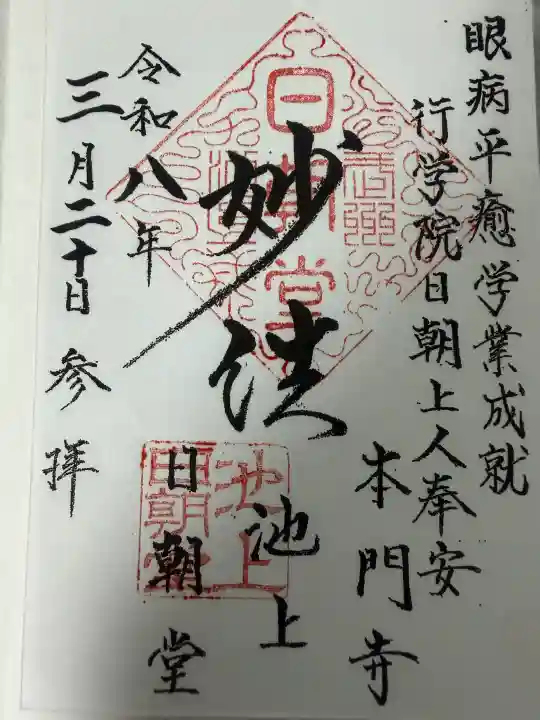 眼病平癒学業成就
行学院日朝上人奉安
本門寺
池上
妙法
日朝堂
令和八年
三月二十日 参拝
日朝堂
池上
日朝堂